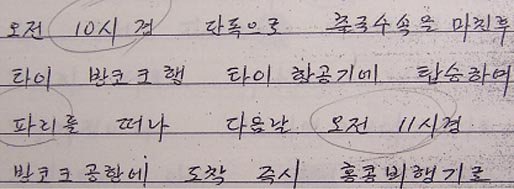 오전 10시 경 단독으로 출국수속을 마친후
타이 방코크행 타이 항공기에 탑승하여
파리를 떠나 다음날 오전 11시경
방코크공항에 도착 즉시 홍콩비행기로